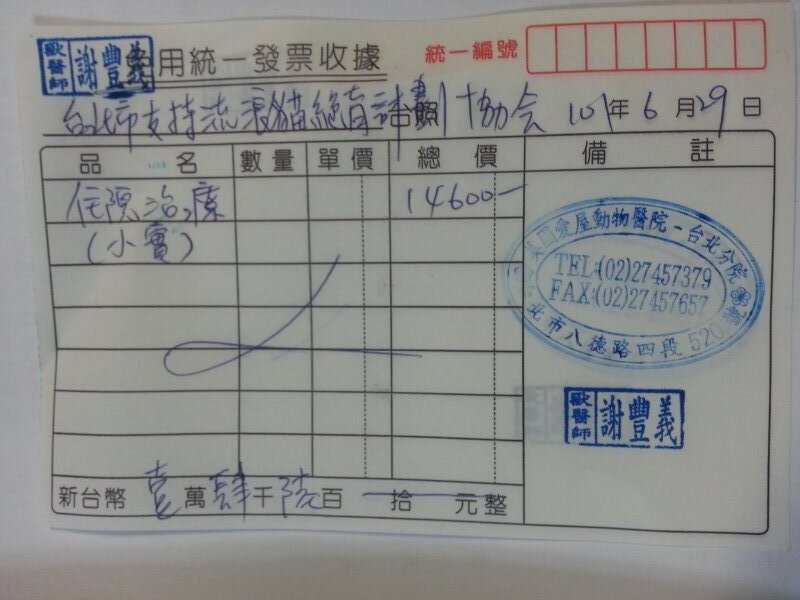 獸醫師 謝豐義 免用統一發票收據 統一編號
台北市支持流浪貓絕育計劃協会 台照 101年6月29日
品名 數量 單價 總價 備註
住院治療 14600—
(小寶)
愛屋動物醫院-台北分院
TEL:(02)27457379
FAX:(02)27457657
北市八德路四段520
獸醫師 謝豐義
新台幣 壹萬肆千陸百 拾 元整